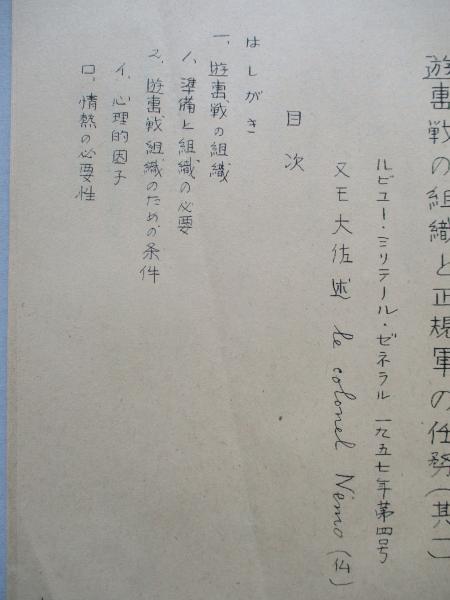 遊撃戦の組織と正規軍の任務(其一)
ルビュー・ミリテール・ゼネラル 一九五七年第四号
ヌモ大佐述 le colonel Némo (仏)
目次
はしがき
一、遊撃戦の組織
1、準備と組織の必要
2、遊撃戦組織のための条件
イ、心理的因子
ロ、情熱の必要性